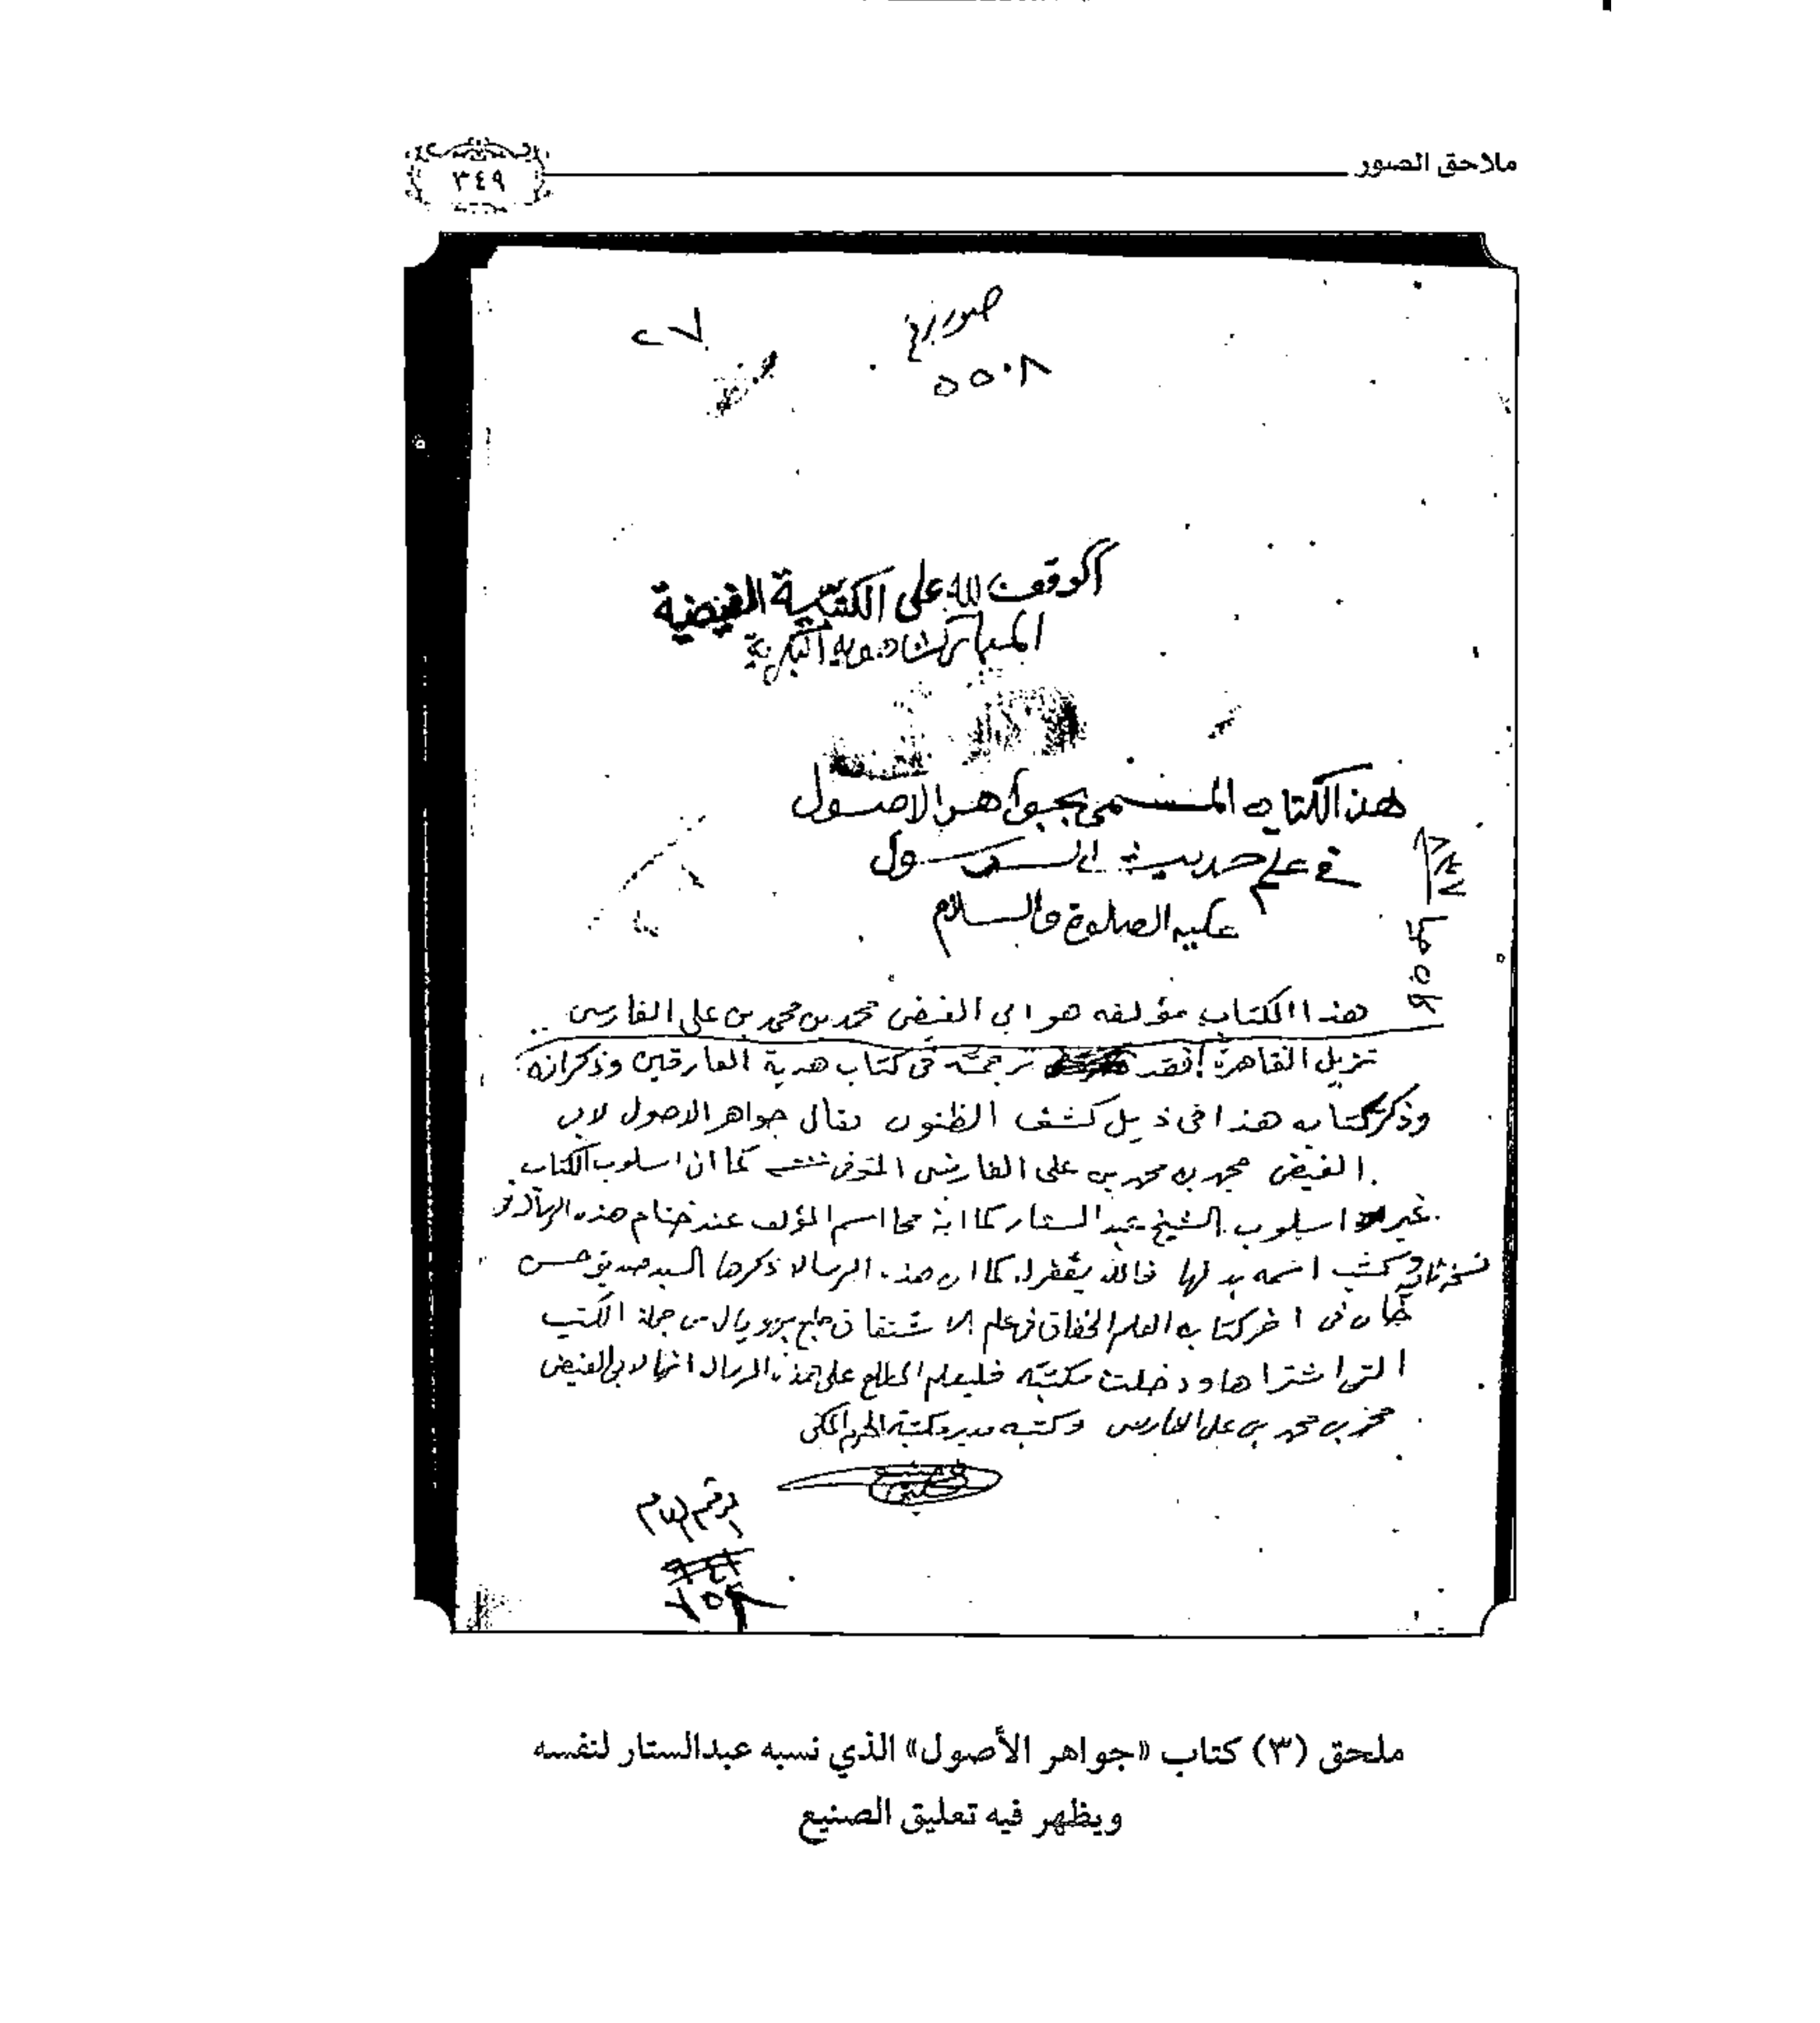 ملاحق الصور
٣٤٩
صور رغ
٥٥٠٨
٢٧
الوقف لله على الكتبية الفيضية
المباركشاهويه البكرية
هذ الكتاب المسمى بجواهر الاصول
في علم حديث الرسول
عليه الصلوة والسلام
هذا الكتاب مؤلفه هو ابى الفيض محمد بن محمد بن على الفارسى
نزيل القاهرة فقد ترجمته فى كتاب هدية العارفين وذكر انه
وذكر كتابه هذا فى ذيل كشف الظنون فقال جواهر الاصول لابى
الفيض محمد بن محمد بن على الفارسى المتوفى كما ان اسلوب الكتاب
غير اسلوب الشيخ عبد الستار كما انه محا اسم المؤلف عند ختام هذه الرسالة فى
نسخة ثانية وكتب اسمه بدلها فالله يغفر له كما ان هذه الرسالة ذكرها السيد صديق حسن
خان فى اخر كتابه العلم الخفاق فى علم الاشتقاق من جملة الكتب
التى اشتراها ودخلت مكتبته فليعلم المطلع على هذه الرسالة انها لابى الفيض
محمد بن محمد بن على الفارسى وكتبه مدير مكتبة الحرم المكى
الرقم العام
٧٥٨
ملحق (٣) كتاب «جواهر الأصول» الذي نسبه عبدالستار لنفسه
ويظهر فيه تعليق الصنيع